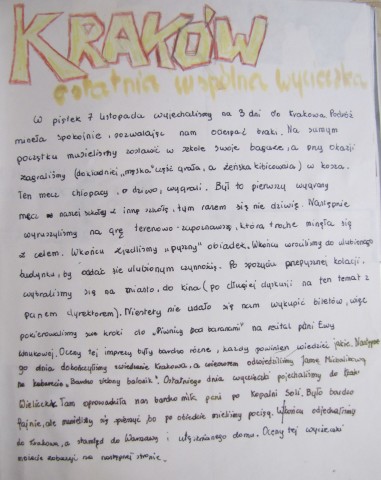 KRAKÓW
ostatnia wspólna wycieczka
W piątek 7 listopada wyjechaliśmy na 3 dni do Krakowa. Podróż
minęła spokojnie, pozwalając nam odespać braki. Na samym
początku musieliśmy zostawić w szkole swoje bagaże, a przy okazji
zagraliśmy (dokładniej „męska" część grała, a żeńska kibicowała) w kosza.
Ten mecz chłopacy, o dziwo, wygrali. Był to pierwszy wygrany
mecz naszej szkoły z inną szkołą, tym razem się nie dziwię. Następnie
wyruszyliśmy na grę terenowo-zapoznawczą, która trochę minęła się
z celem. Wkońcu zjedliśmy „pyszny" obiadek. Wkońcu wróciliśmy do ulubionego
budynku, by oddać się ulubionym czynnością. Po spożyciu przepysznej kolacji,
wybraliśmy się na miasto, do kina (po długiej dyskusji na ten temat z
panem dyrektorem). Niestety nie udało się nam wykupić biletów, więc
pokierowaliśmy swe kroki do „Piwnicy pod baranami" na recital pani Ewy
Wnukowej. Oceny tej imprezy były bardzo różne, każdy powinien wiedzieć jakie. Następne-
go dnia dokończyliśmy zwiedzanie Krakowa, a wieczorem odwiedziliśmy Jamę Michalikową
na kabarecie „Bardzo zielony balonik". Ostatniego dnia wycieczki pojechaliśmy do
Wieliczki. Tam oprowadziła nas bardzo miła pani po Kopalni Soli. Było bardzo
fajnie, ale musieliśmy się spieszyć, bo po obiedzie mieliśmy pociąg. Wkońcu odjechaliśmy
do Krakowa, a stamtąd do Warszawy i utęsknionego domu. Oceny tej wycieczki
możecie zobaczyć na następnej stronie.